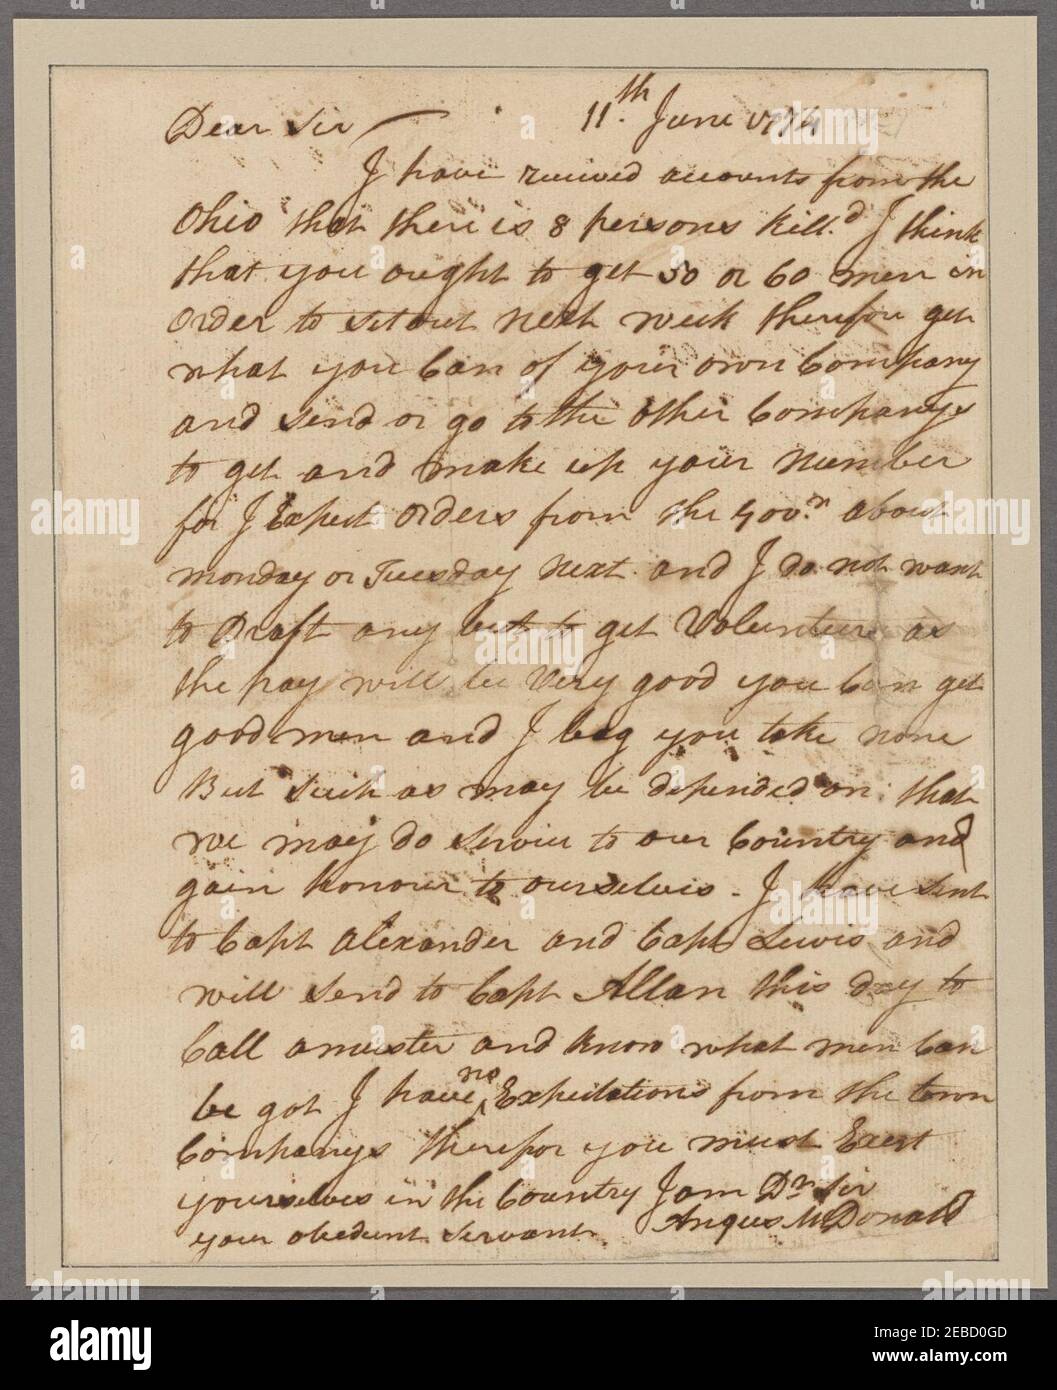 Dear Sir 11th June 1774
I have recived accounts from the
Ohio that there is 8 persons kill.d I think
that you ought to get 50 or 60 men in
order to set out next week therefor get
what you Can of your own Company
and send or go to the other Companys
to get and make up your Number
for I Expect orders from the Govr. about
monday or Tuesday Next. and I do not want
to Draft any but to get Volunteers as
the pay will be Very good you Can get
good men and I beg you take none
But such as may be depended on, that
we may do service to our Country and
gain honour to ourselves. I have sent
to Capt Alexander and Capt Lewis and
will send to Capt Allan this day to
Call a muster and know what men Can
be got I have no Expectations from the town
Companys therefor you must Exert
yourselves in the Country I am Dr Sir
your obedient servant. Angus McDonald
alamy
Image ID: 2EBD0GD
www.alamy.com